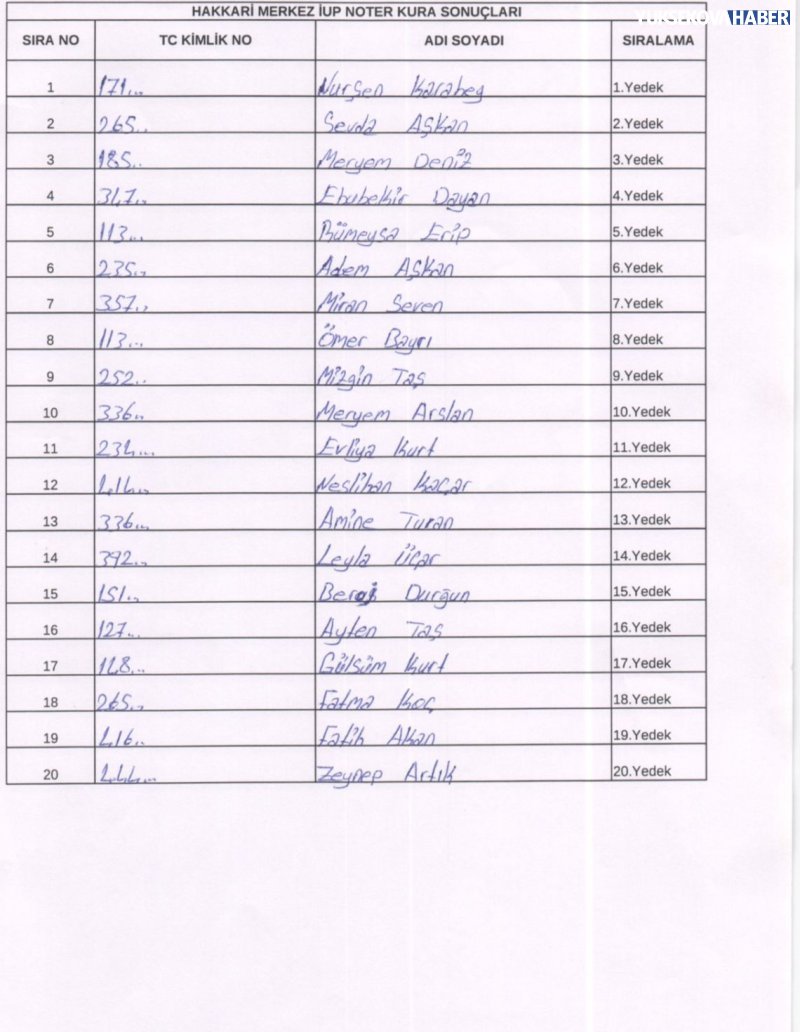 HAKKARİ MERKEZ İUP NOTER KURA SONUÇLARI
YÜKSEKOVA HABER
SIRA NO TC KİMLİK NO ADI SOYADI SIRALAMA
1 171... Nurşen Karabeg 1.Yedek
2 265.. Sevda Aşkan 2.Yedek
3 185.. Meryem Deniz 3.Yedek
4 317.. Ebubekir Dayan 4.Yedek
5 113... Rümeysa Erip 5.Yedek
6 235.. Adem Aşkan 6.Yedek
7 357.. Miran Seven 7.Yedek
8 113... Ömer Bayrı 8.Yedek
9 252.. Mizgin Taş 9.Yedek
10 336.. Meryem Arslan 10.Yedek
11 234... Evliya Kurt 11.Yedek
12 Neslihan Kaçar 12.Yedek
13 336... Amine Turan 13.Yedek
14 392.. Leyla Üçar 14.Yedek
15 151.. Durğun 15.Yedek
16 127... Ayten Taş 16.Yedek
17 Gülsüm Kurt 17.Yedek
18 265.. Fatma Koç 18.Yedek
19 Fatih Akan 19.Yedek
20 Zeynep Artık 20.Yedek